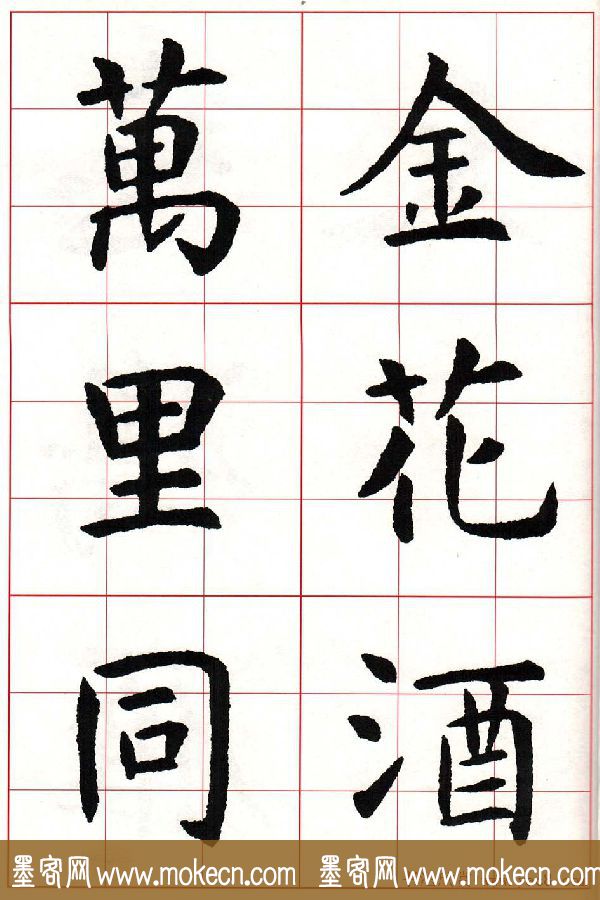 金花酒
萬里同
墨客网www.mokecn.com 墨客网www.mokecn.com